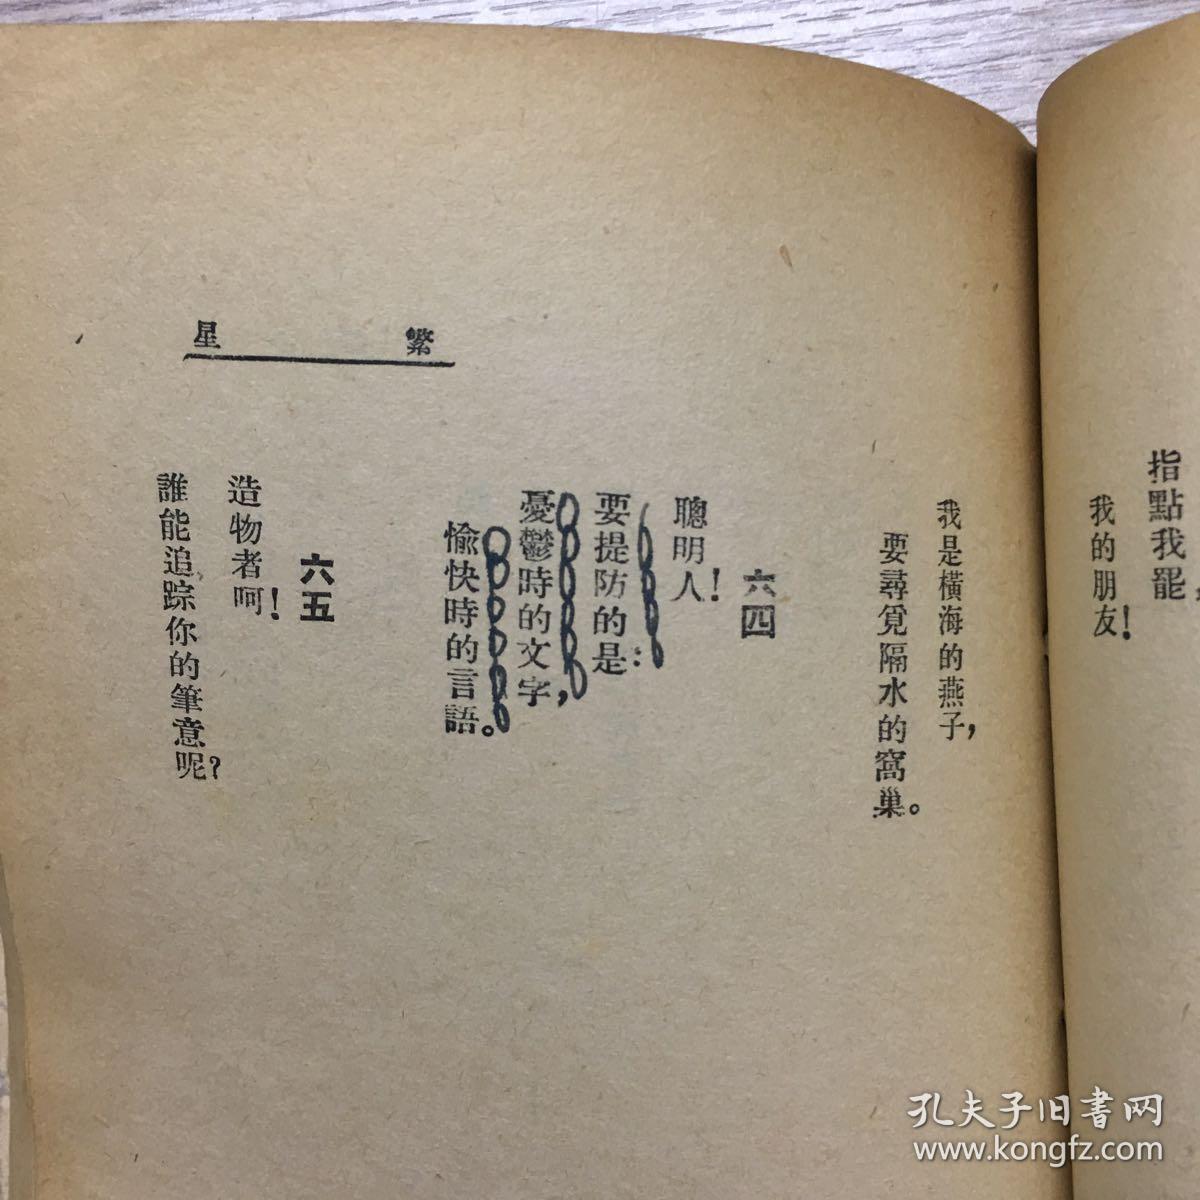 指點我罷，
我的朋友！
我是橫海的燕子，
要尋覓隔水的窩巢。
六四
聰明人！
要提防的是：
憂鬱時的文字，
愉快時的言語。
六五
造物者呵！
誰能追踪你的筆意呢？
繁星
孔夫子旧書网
www.kongfz.com